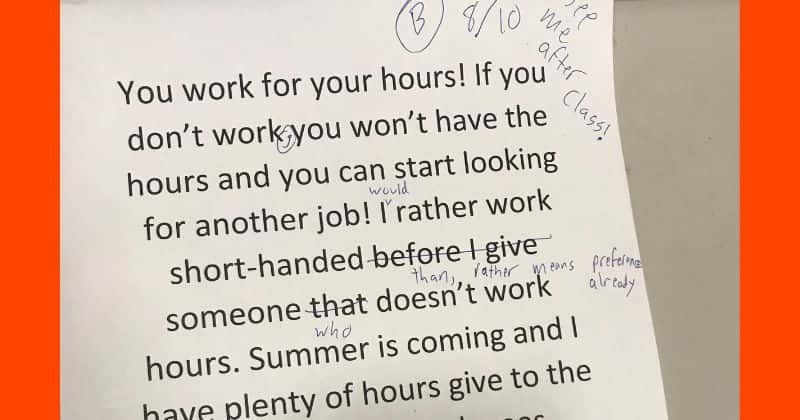 B 8/10 See me after class!
You work for your hours! If you
don't work, you won't have the
hours and you can start looking
would
for another job! I rather work
short-handed before I give
than, rather means preference already
someone that doesn't work
who
hours. Summer is coming and I
have plenty of hours give to the